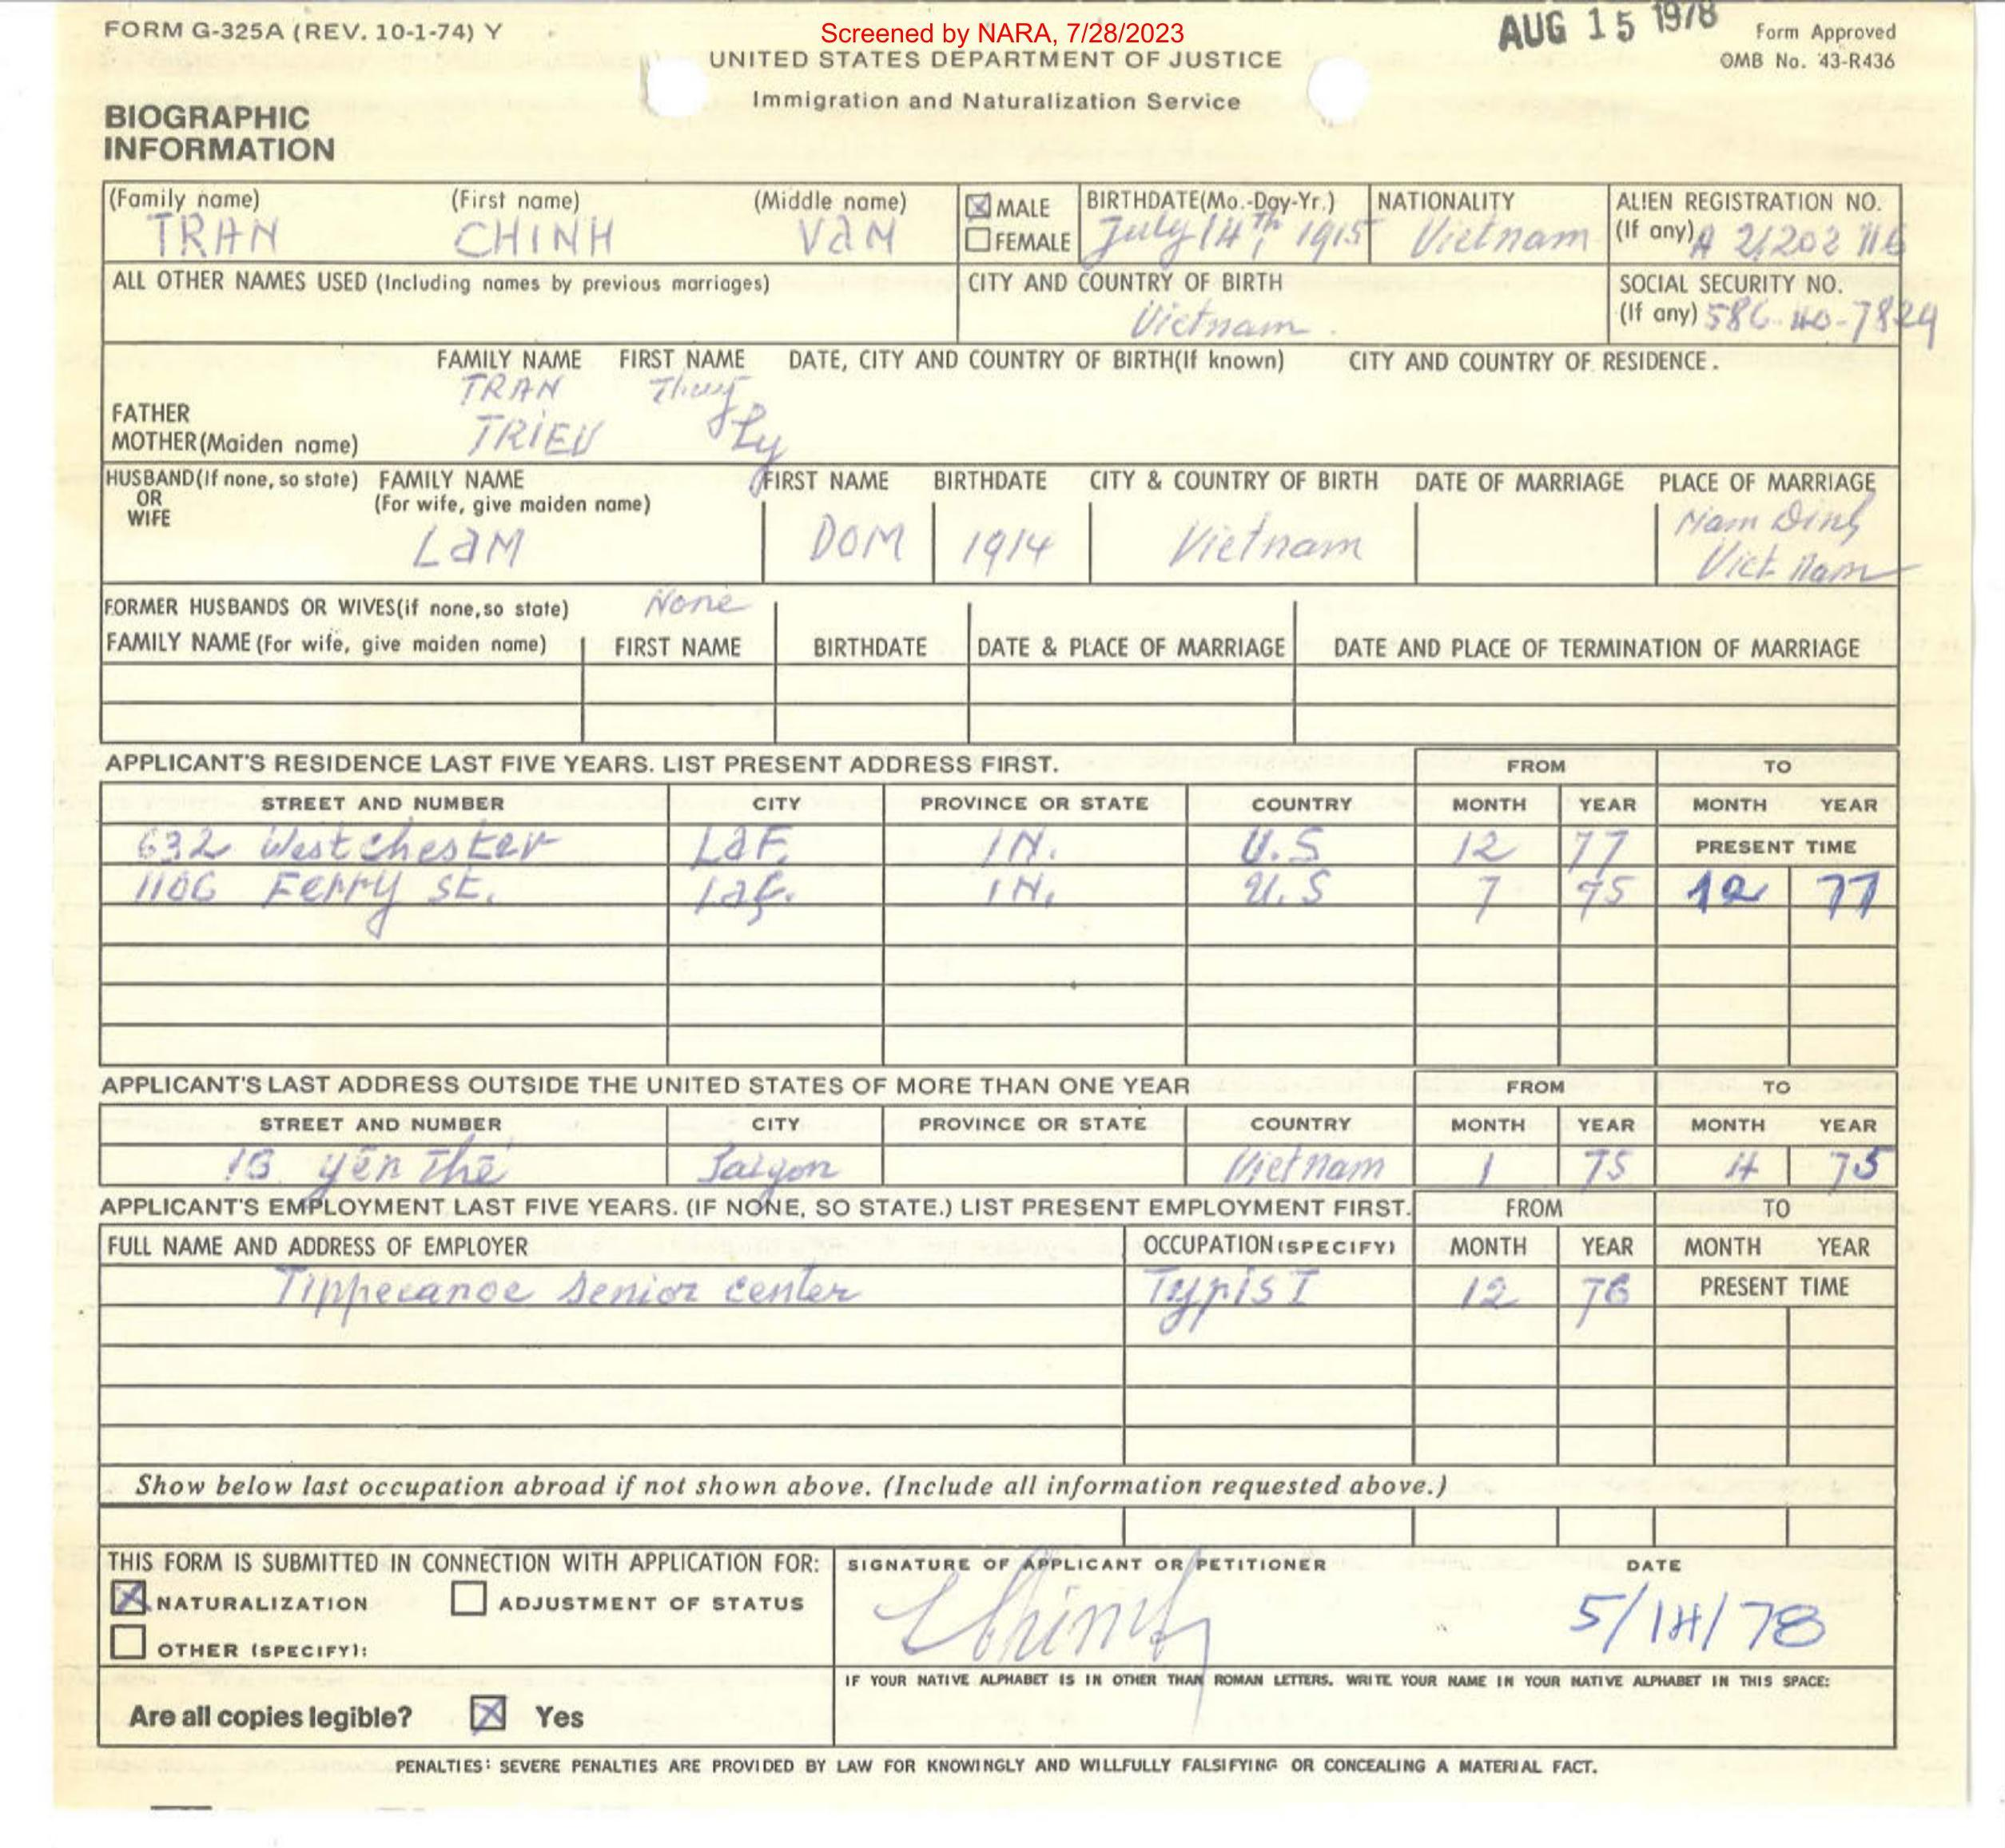 FORM G-325A (REV. 10-1-74) Y
Screened by NARA, 7/28/2023
AUG 15 1978
Form Approved
OMB No. 43-R436
UNITED STATES DEPARTMENT OF JUSTICE
Immigration and Naturalization Service
BIOGRAPHIC
INFORMATION
(Family name) (First name) (Middle name) MALE BIRTHDATE(Mo.-Day-Yr.) NATIONALITY ALIEN REGISTRATION NO.
TRAN CHINH VAN FEMALE July 14th, 1915 Vietnam (If any) A 21202 116
ALL OTHER NAMES USED (Including names by previous marriages) CITY AND COUNTRY OF BIRTH SOCIAL SECURITY NO.
Vietnam. (If any) 586-40-7824
FAMILY NAME FIRST NAME DATE, CITY AND COUNTRY OF BIRTH(If known) CITY AND COUNTRY OF RESIDENCE.
FATHER TRAN Thuy
MOTHER(Maiden name) TRIEU Ly
HUSBAND(If none, so state) FAMILY NAME FIRST NAME BIRTHDATE CITY & COUNTRY OF BIRTH DATE OF MARRIAGE PLACE OF MARRIAGE
OR (For wife, give maiden name)
WIFE
LAM DOM 1914 Vietnam Nam Dinh
Viet Nam
FORMER HUSBANDS OR WIVES(if none,so state) None
FAMILY NAME (For wife, give maiden name) FIRST NAME BIRTHDATE DATE & PLACE OF MARRIAGE DATE AND PLACE OF TERMINATION OF MARRIAGE
APPLICANT'S RESIDENCE LAST FIVE YEARS. LIST PRESENT ADDRESS FIRST. FROM TO
STREET AND NUMBER CITY PROVINCE OR STATE COUNTRY MONTH YEAR MONTH YEAR
632 Westchester LaF. IN. U.S 12 77 PRESENT TIME
1106 Ferry St. Laf. IN. U.S 7 75 12 77
APPLICANT'S LAST ADDRESS OUTSIDE THE UNITED STATES OF MORE THAN ONE YEAR FROM TO
STREET AND NUMBER CITY PROVINCE OR STATE COUNTRY MONTH YEAR MONTH YEAR
yên Thế Saigon Vietnam 1 75 4 75
APPLICANT'S EMPLOYMENT LAST FIVE YEARS. (IF NONE, SO STATE.) LIST PRESENT EMPLOYMENT FIRST. FROM TO
FULL NAME AND ADDRESS OF EMPLOYER OCCUPATION (SPECIFY) MONTH YEAR MONTH YEAR
Tippecanoe senior center Typist 12 76 PRESENT TIME
Show below last occupation abroad if not shown above. (Include all information requested above.)
THIS FORM IS SUBMITTED IN CONNECTION WITH APPLICATION FOR: SIGNATURE OF APPLICANT OR PETITIONER DATE
NATURALIZATION ADJUSTMENT OF STATUS Chinh 5/14/78
OTHER (SPECIFY):
IF YOUR NATIVE ALPHABET IS IN OTHER THAN ROMAN LETTERS, WRITE YOUR NAME IN YOUR NATIVE ALPHABET IN THIS SPACE:
Are all copies legible? Yes
PENALTIES: SEVERE PENALTIES ARE PROVIDED BY LAW FOR KNOWINGLY AND WILLFULLY FALSIFYING OR CONCEALING A MATERIAL FACT.